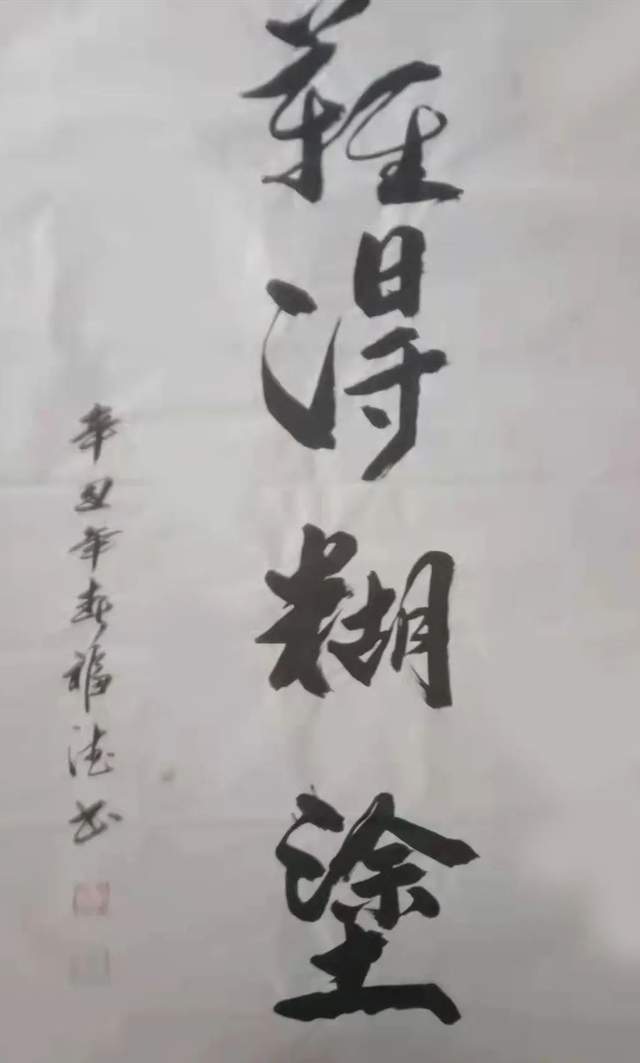 難得糊塗
辛丑年春福德书